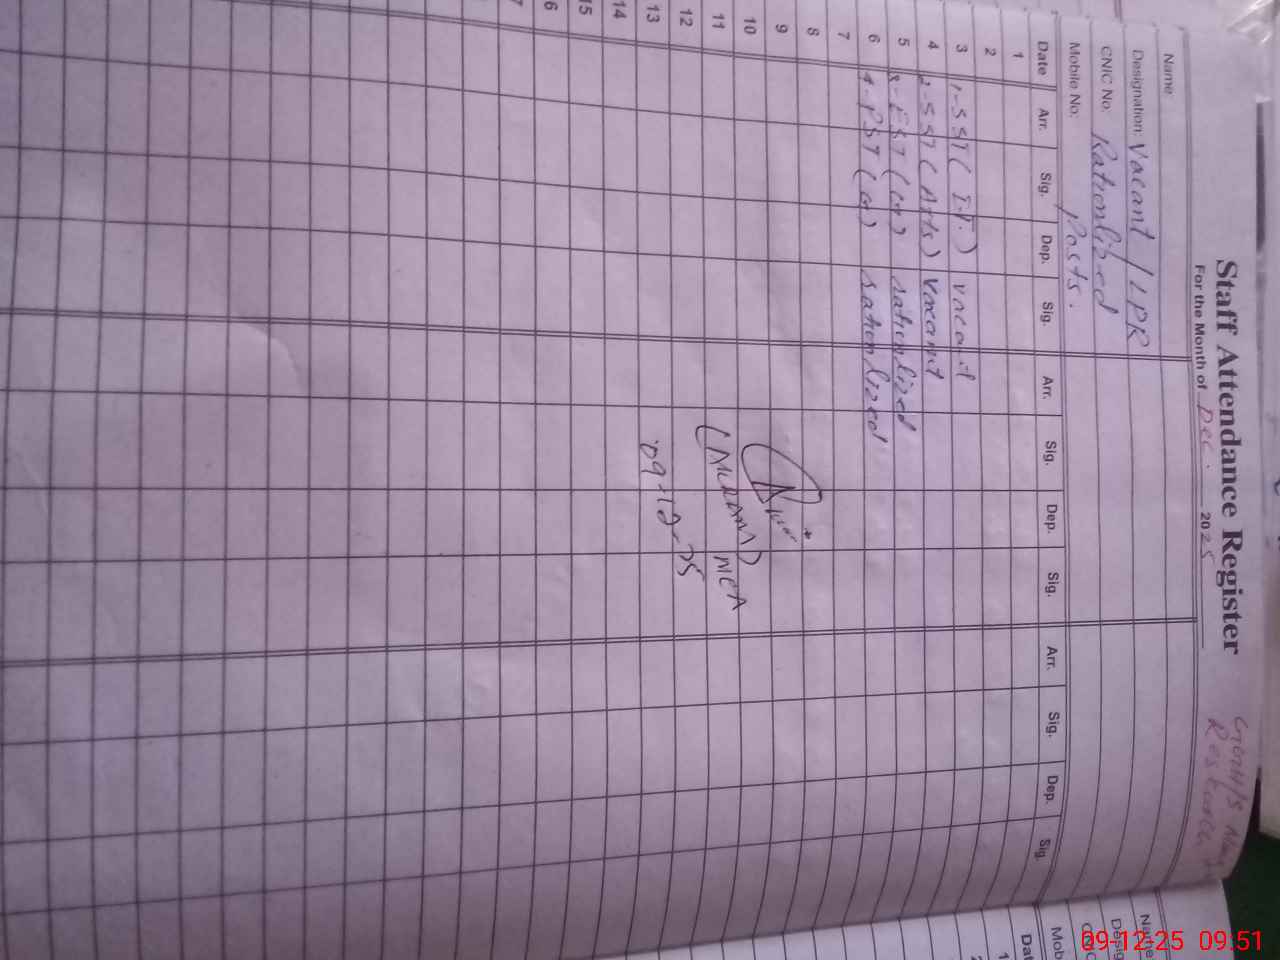 Staff Attendance Register
For the Month of Dec. 2025
Name:
Designation: Vacant / LPR
CNIC No: Rationlized
Mobile No: Posts.
Date Arr. Sig. Dep. Sig. Arr. Sig. Dep. Sig. Arr. Sig. Dep. Sig.
1
2
3 1-SST (I.T.) vacant
4 2-SST (Arts) vacant
5 3-EST (
) rationlized
6 4-PST (
) rationlized
7
8
9
10
11 MEA
12
13 09-12-25
14
15
6
7
Name
Desig
Mob
Dat
1
2
09-12-25 09:51